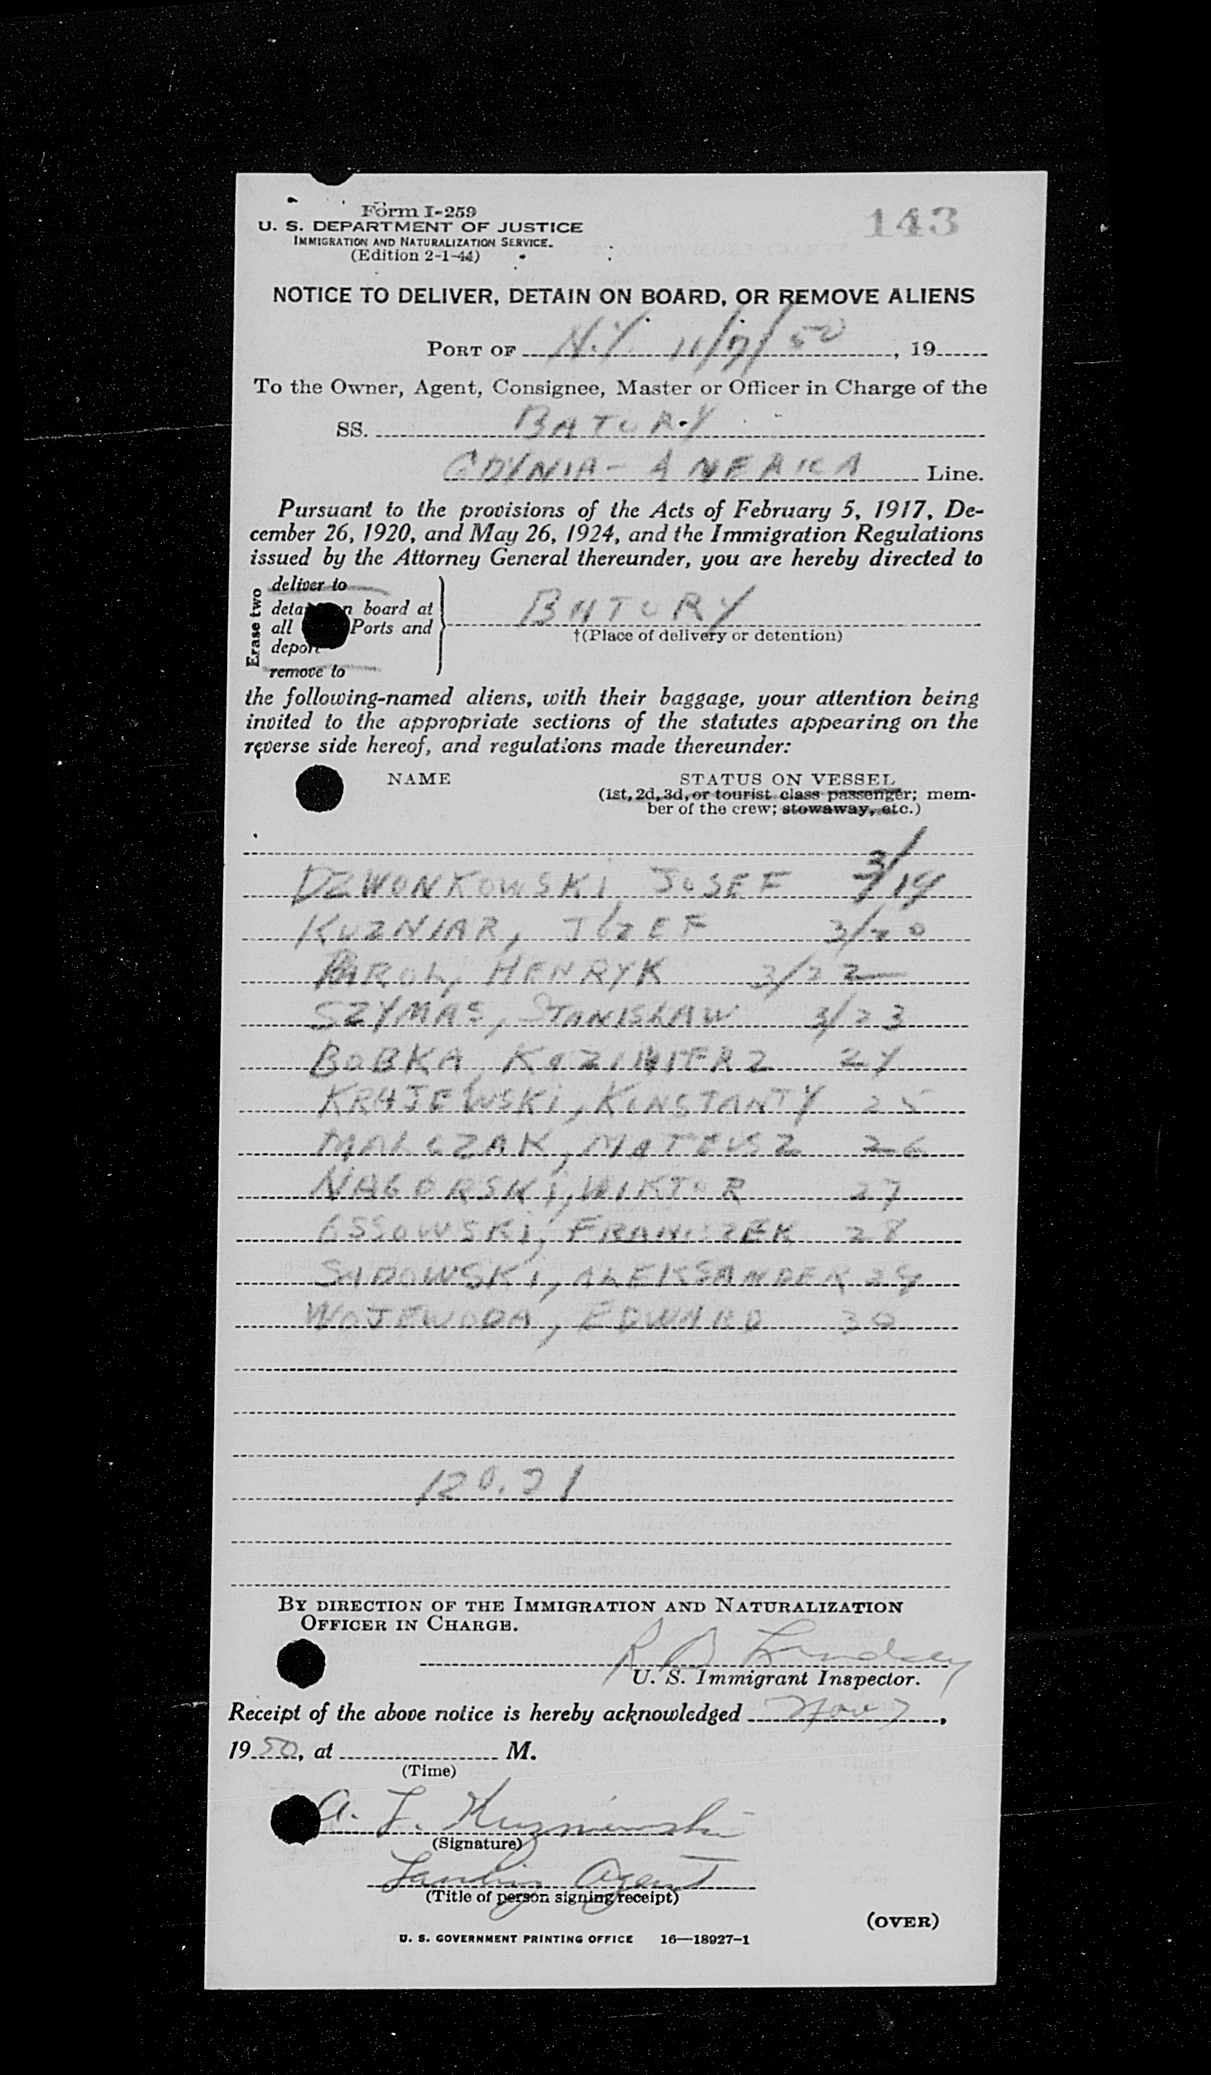 Form I-259
143
U. S. DEPARTMENT OF JUSTICE
IMMIGRATION AND NATURALIZATION SERVICE.
(Edition 2-1-44)
NOTICE TO DELIVER, DETAIN ON BOARD, OR REMOVE ALIENS
PORT OF N.Y. 11/7/50, 19
To the Owner, Agent, Consignee, Master or Officer in Charge of the
SS. BATORY
GDYNIA-AMERICA Line.
Pursuant to the provisions of the Acts of February 5, 1917, De-
cember 26, 1920, and May 26, 1924, and the Immigration Regulations
issued by the Attorney General thereunder, you are hereby directed to
Erase two
deliver to
detain on board at
all Ports and
deport
remove to
BATORY
†(Place of delivery or detention)
the following-named aliens, with their baggage, your attention being
invited to the appropriate sections of the statutes appearing on the
reverse side hereof, and regulations made thereunder:
NAME
STATUS ON VESSEL
(1st, 2d, 3d, or tourist class passenger; mem-
ber of the crew; stowaway, etc.)
DZWONKOWSKI, JOSEF 3/19
KUZNIAR, JOZEF 3/20
HENRYK 3/22
SZYMAS, STANISLAW 3/23
BOBKA, KAZIMIERZ 24
KRAJEWSKI, KONSTANTY 25
MALCZAK, MATEUSZ 26
NAGORSKI, WIKTOR 27
OSSOWSKI, FRANCISZEK 28
SADOWSKI, ALEKSANDER 29
WOJEWODA, EDWARD 30
120.21
BY DIRECTION OF THE IMMIGRATION AND NATURALIZATION
OFFICER IN CHARGE.
R B Lindsey
U. S. Immigrant Inspector.
Receipt of the above notice is hereby acknowledged Nov 7,
1950, at M.
(Time)
A. J. Kuzniewski
(Signature)
Landing Agent
(Title of person signing receipt)
(OVER)
U. S. GOVERNMENT PRINTING OFFICE 16—18927-1